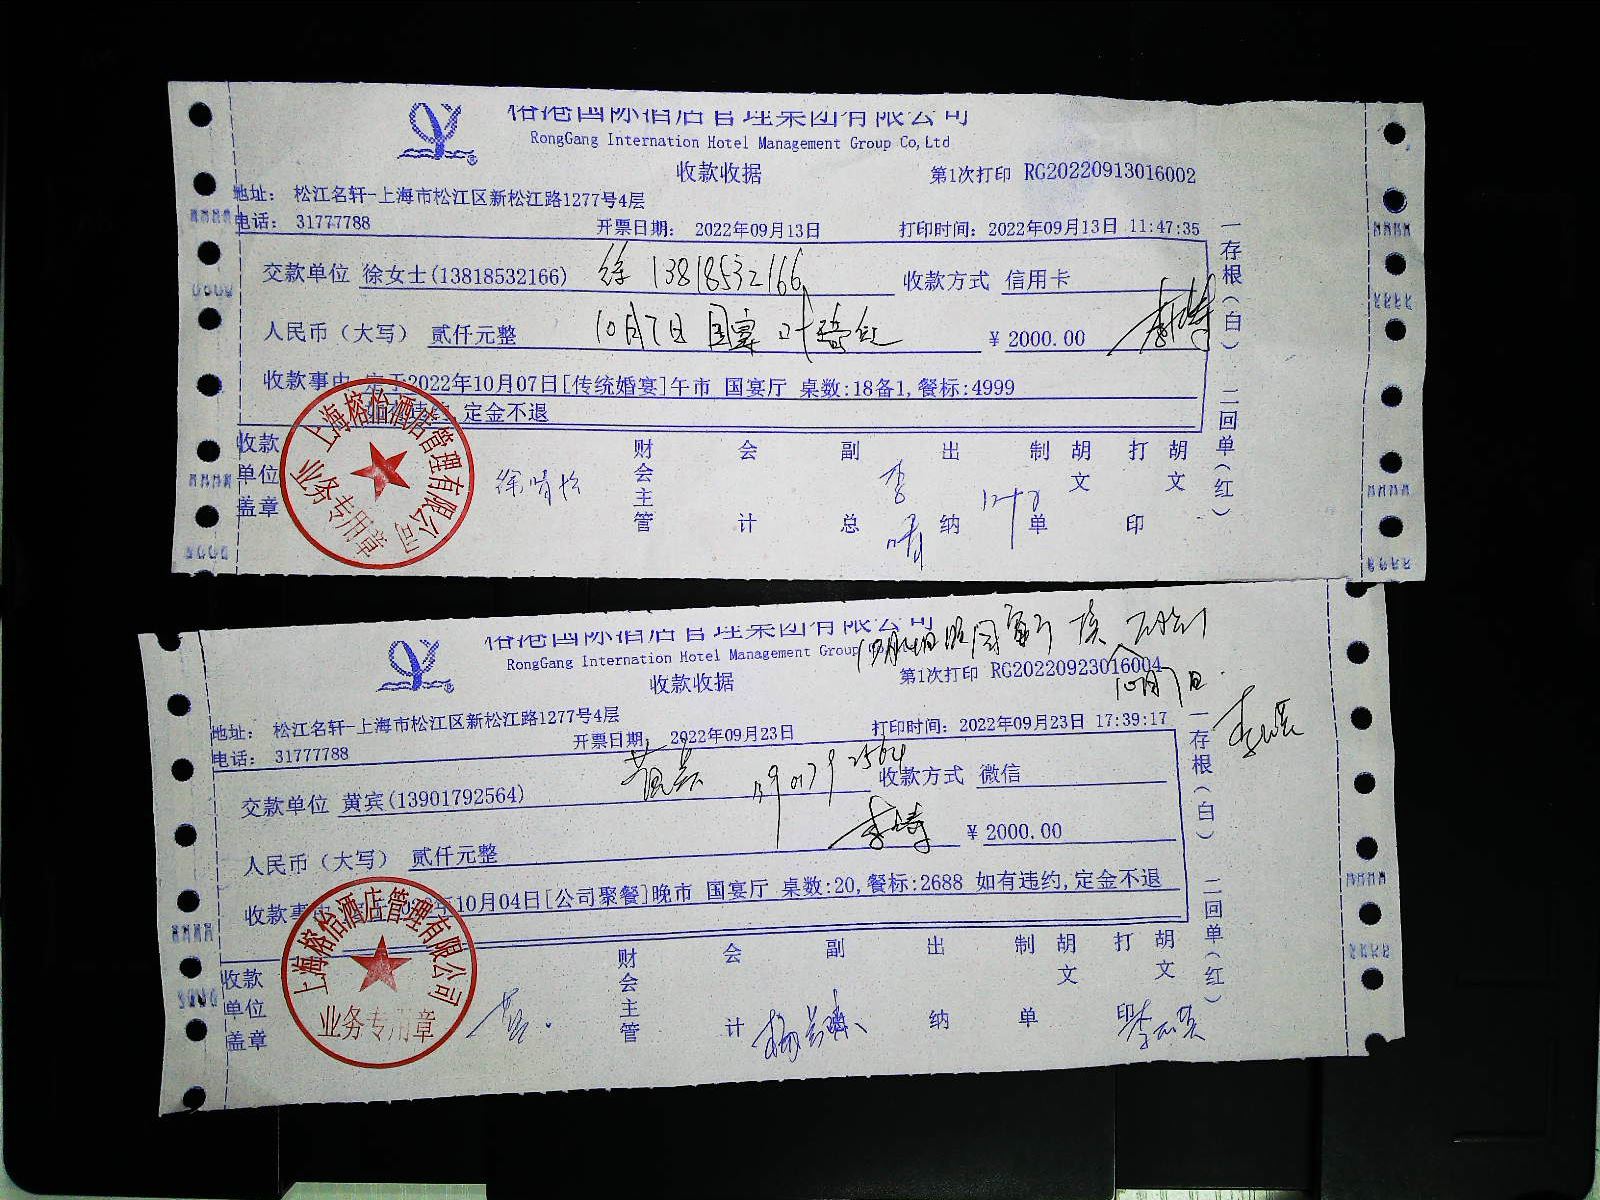 榕港国际酒店管理集团有限公司
RongGang Internation Hotel Management Group Co,Ltd
收款收据 第1次打印 RG20220913016002
地址： 松江名轩-上海市松江区新松江路1277号4层
电话： 31777788 开票日期： 2022年09月13日 打印时间：2022年09月13日 11:47:35
交款单位 徐女士(13818532166) 徐 13818532166 收款方式 信用卡
人民币（大写） 贰仟元整 10月7日 国宴 ¥ 2000.00
收款事由 定于2022年10月07日[传统婚宴]午市 国宴厅 桌数:18备1,餐标:4999
如有违约,定金不退
收款单位盖章 财会主管 会计 副总 出纳 制单 胡文 打印 胡文
一存根（白） 二回单（红）
上海榕怡酒店管理有限公司
业务专用章
榕港国际酒店管理集团有限公司
RongGang Internation Hotel Management Group
收款收据 第1次打印 RG20220923016004
10月7日
地址： 松江名轩-上海市松江区新松江路1277号4层
电话： 31777788 开票日期： 2022年09月23日 打印时间：2022年09月23日 17:39:17
交款单位 黄宾(13901792564) 13901792564 收款方式 微信
人民币（大写） 贰仟元整 ¥ 2000.00
收款事由 年10月04日[公司聚餐]晚市 国宴厅 桌数:20,餐标:2688 如有违约,定金不退
收款单位盖章 财会主管 会计 副 出纳 制单 胡文 打印 胡文
一存根（白） 二回单（红）
上海榕怡酒店管理有限公司
业务专用章